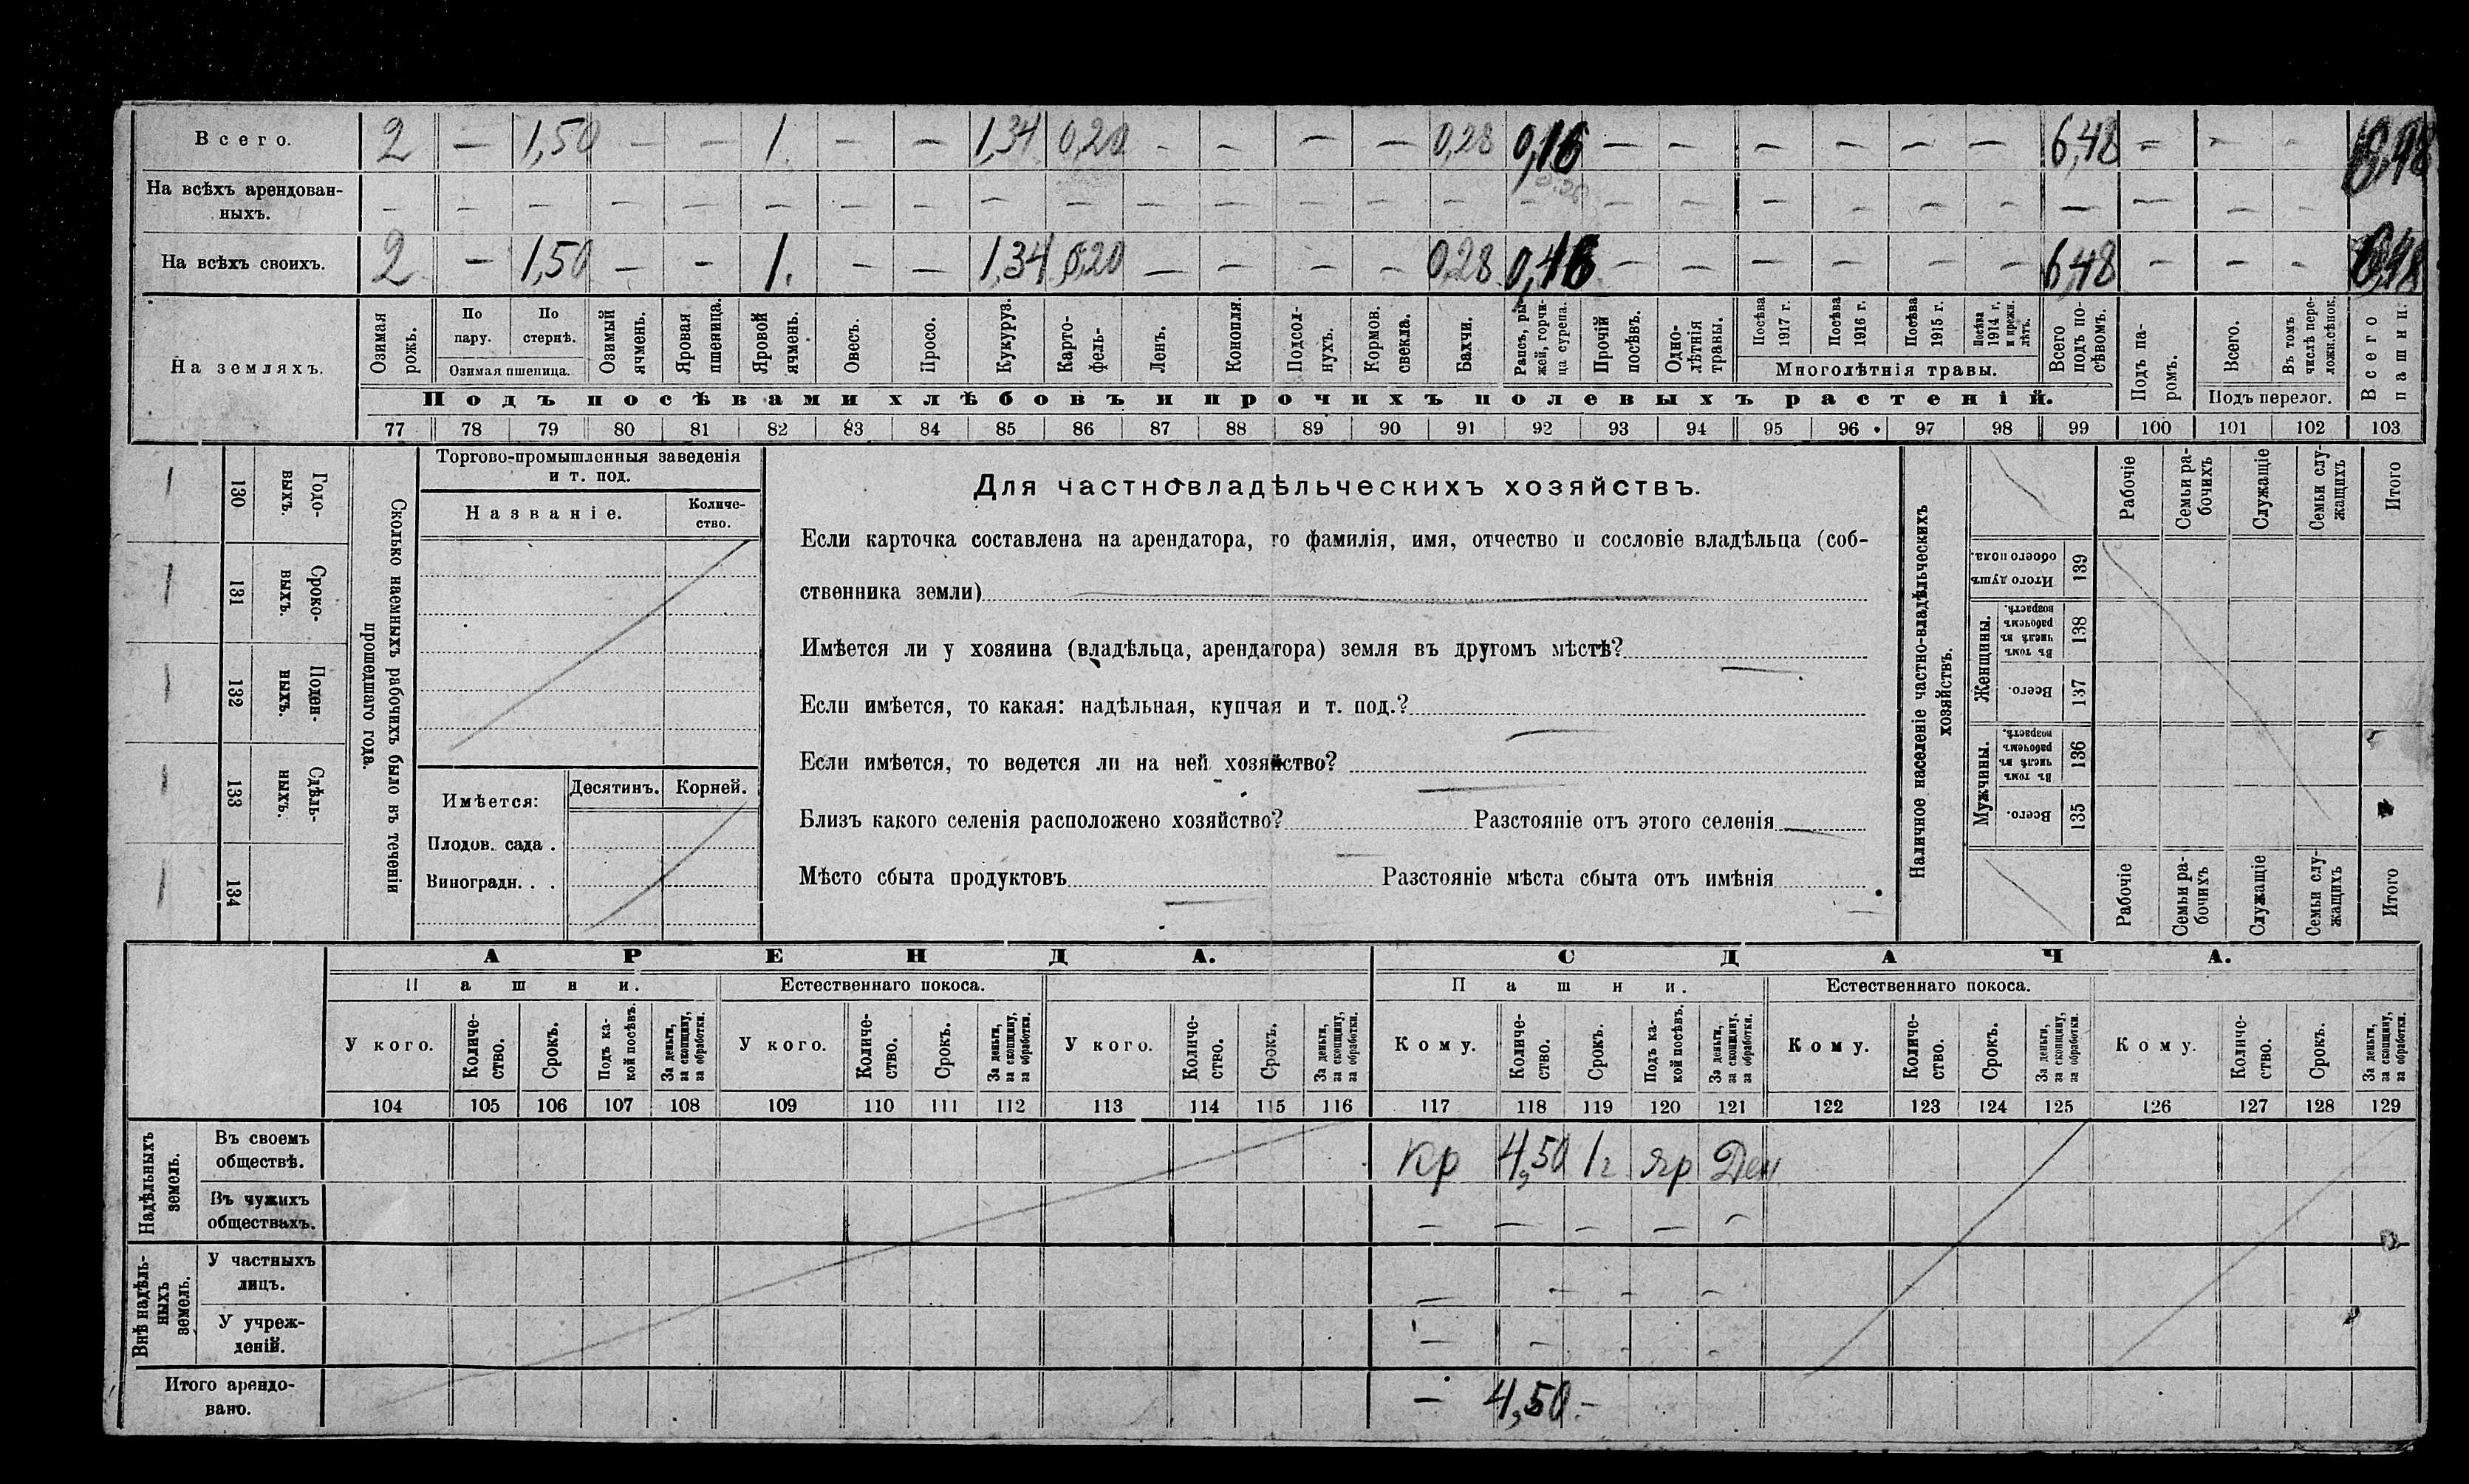 Всего. 2 — 1,50 — — 1. — — 1,34 0,20 - - — — 0,28 0,16 — — — — — — 6,48 — - —
На всѣхъ арендован-
ныхъ. — — — — — — — — — — — — — — — — — — — — — — — — — —
На всѣхъ своихъ. 2 — 1,50 — — 1. — — 1,34 0,20 — — — — 0,28 0,16 — — — — — — 6,48 — — —
На земляхъ.
Озимая рожь.
По пару.
По стернѣ.
Озимая пшеница.
Озимый ячмень.
Яровая пшеница.
Яровой ячмень.
Овесъ.
Просо.
Кукуруз.
Карто-
фель-
Ленъ.
Конопля.
Подсол-
нухъ.
Кормов.
свекла.
Бахчи.
Рапсъ, ры-
жей, горчи-
ца сурепа.
Прочій
посѣвъ.
Одно-
лѣтнія
травы.
Посѣва
1917 г.
Посѣва
1916 г.
Посѣва
1915 г.
Посѣва
1914 г.
и прежн.
лѣтъ.
Многолѣтнія травы.
Всего
подъ по-
сѣвомъ.
Подъ па-
ромъ.
Всего.
Въ томъ
числѣ пере-
ложн.сѣнок.
Подъ перелог.
Всего
пашни.
Подъ посѣвами хлѣбовъ и прочихъ полевыхъ растеній.
77 78 79 80 81 82 83 84 85 86 87 88 89 90 91 92 93 94 95 96 97 98 99 100 101 102 103
130 Годо-
выхъ.
131 Сроко-
выхъ.
132 Поден-
ныхъ.
133 Сдѣль-
ныхъ.
134
Сколько наемныхъ рабочихъ было въ теченіи
прошедшаго года.
Торгово-промышленныя заведенія
и т. под.
Названіе.
Количе-
ство.
Имѣется:
Десятинъ. Корней.
Плодов. сада .
Виноградн. . .
Для частновладѣльческихъ хозяйствъ.
Если карточка составлена на арендатора, то фамилія, имя, отчество и сословіе владѣльца (соб-
ственника земли)
Имѣется ли у хозяина (владѣльца, арендатора) земля въ другомъ мѣстѣ?
Если имѣется, то какая: надѣльная, купчая и т. под.?
Если имѣется, то ведется ли на ней хозяйство?
Близъ какого селенія расположено хозяйство? Разстояніе отъ этого селенія
Мѣсто сбыта продуктовъ Разстояніе мѣста сбыта отъ имѣнія
Наличное населеніе частно-владѣльческихъ
хозяйствъ.
Рабочіе
Семьи ра-
бочихъ
Служащіе
Семьи слу-
жащихъ
Итого
Итого душъ
обоего пола.
139
Женщины.
Въ томъ
числѣ въ
рабочемъ
возрастѣ.
138
Всего.
137
Мужчины.
Въ томъ
числѣ въ
рабочемъ
возрастѣ.
136
Всего.
135
Рабочіе
Семьи ра-
бочихъ
Служащіе
Семьи слу-
жащихъ
Итого
АРЕНДА. СДАЧА.
Пашни. Естественнаго покоса. Пашни. Естественнаго покоса.
У кого.
Количе-
ство.
Срокъ.
Подъ ка-
кой посѣвъ.
За деньги,
за скопщину,
за обработки.
У кого.
Количе-
ство.
Срокъ.
За деньги,
за скопщину,
за обработки.
У кого.
Количе-
ство.
Срокъ.
За деньги,
за скопщину,
за обработки.
Кому.
Количе-
ство.
Срокъ.
Подъ ка-
кой посѣвъ.
За деньги,
за скопщину,
за обработки.
Кому.
Количе-
ство.
Срокъ.
За деньги,
за скопщину,
за обработки.
Кому.
Количе-
ство.
Срокъ.
За деньги,
за скопщину,
за обработки.
104 105 106 107 108 109 110 111 112 113 114 115 116 117 118 119 120 121 122 123 124 125 126 127 128 129
Надѣльныхъ
земель.
Въ своемъ
обществѣ. Кр 4,50 1г яр Ден
Въ чужихъ
обществахъ. — — — — —
Внѣ надѣль-
ныхъ
земель.
У частныхъ
лицъ. — - - -
У учреж-
деній. — - -
Итого арендо-
вано. — 4,50.-